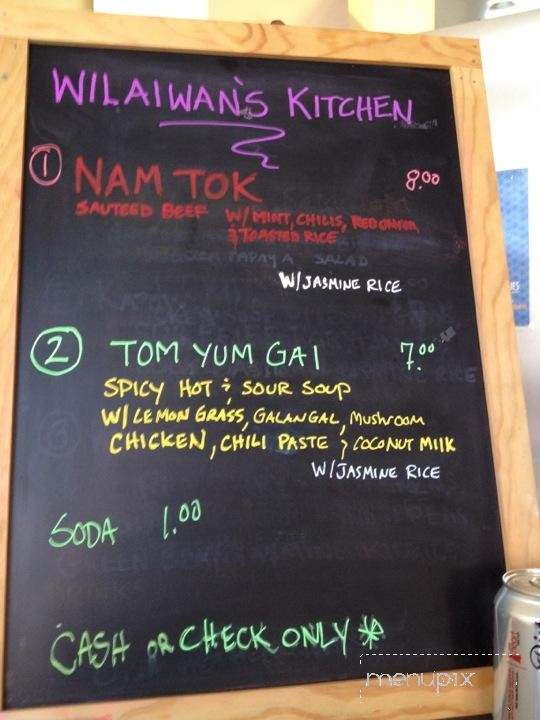 WILAIWAN'S KITCHEN
1 NAM TOK 8.00
SAUTEED BEEF W/MINT, CHILIS, RED ONION,
& TOASTED RICE
PAPAYA SALAD
W/JASMINE RICE
2 TOM YUM GAI 7.00
SPICY HOT & SOUR SOUP
W/LEMON GRASS, GALANGAL, MUSHROOM
CHICKEN, CHILI PASTE & COCONUT MILK
W/JASMINE RICE
SODA 1.00
CASH OR CHECK ONLY *
menupix